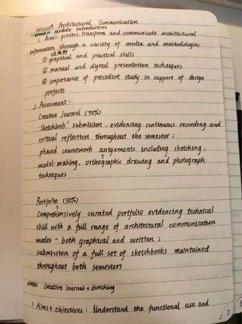 Architectural Communication
Module Introduction
1. Aims: process, transform and communicate architectural
information through a variety of media and methodologies
① graphical and practical skills
② manual and digital presentation techniques
③ importance of precedent study in support of design
projects
2. Assessment:
Creative Journal (50%)
'Sketchbook' submission, evidencing continuous recording and
critical reflection throughout the semester;
phased coursework assignments including sketching,
model-making, orthographic drawing and photograph
techniques
Portfolio (50%)
Comprehensively curated portfolio evidencing technical
skill with a full range of architectural communication
modes - both graphical and written;
submission of a full set of sketchbooks maintained
throughout both semesters
Creative Journal & sketching
1. Aims & objectives: Understand the functional use and